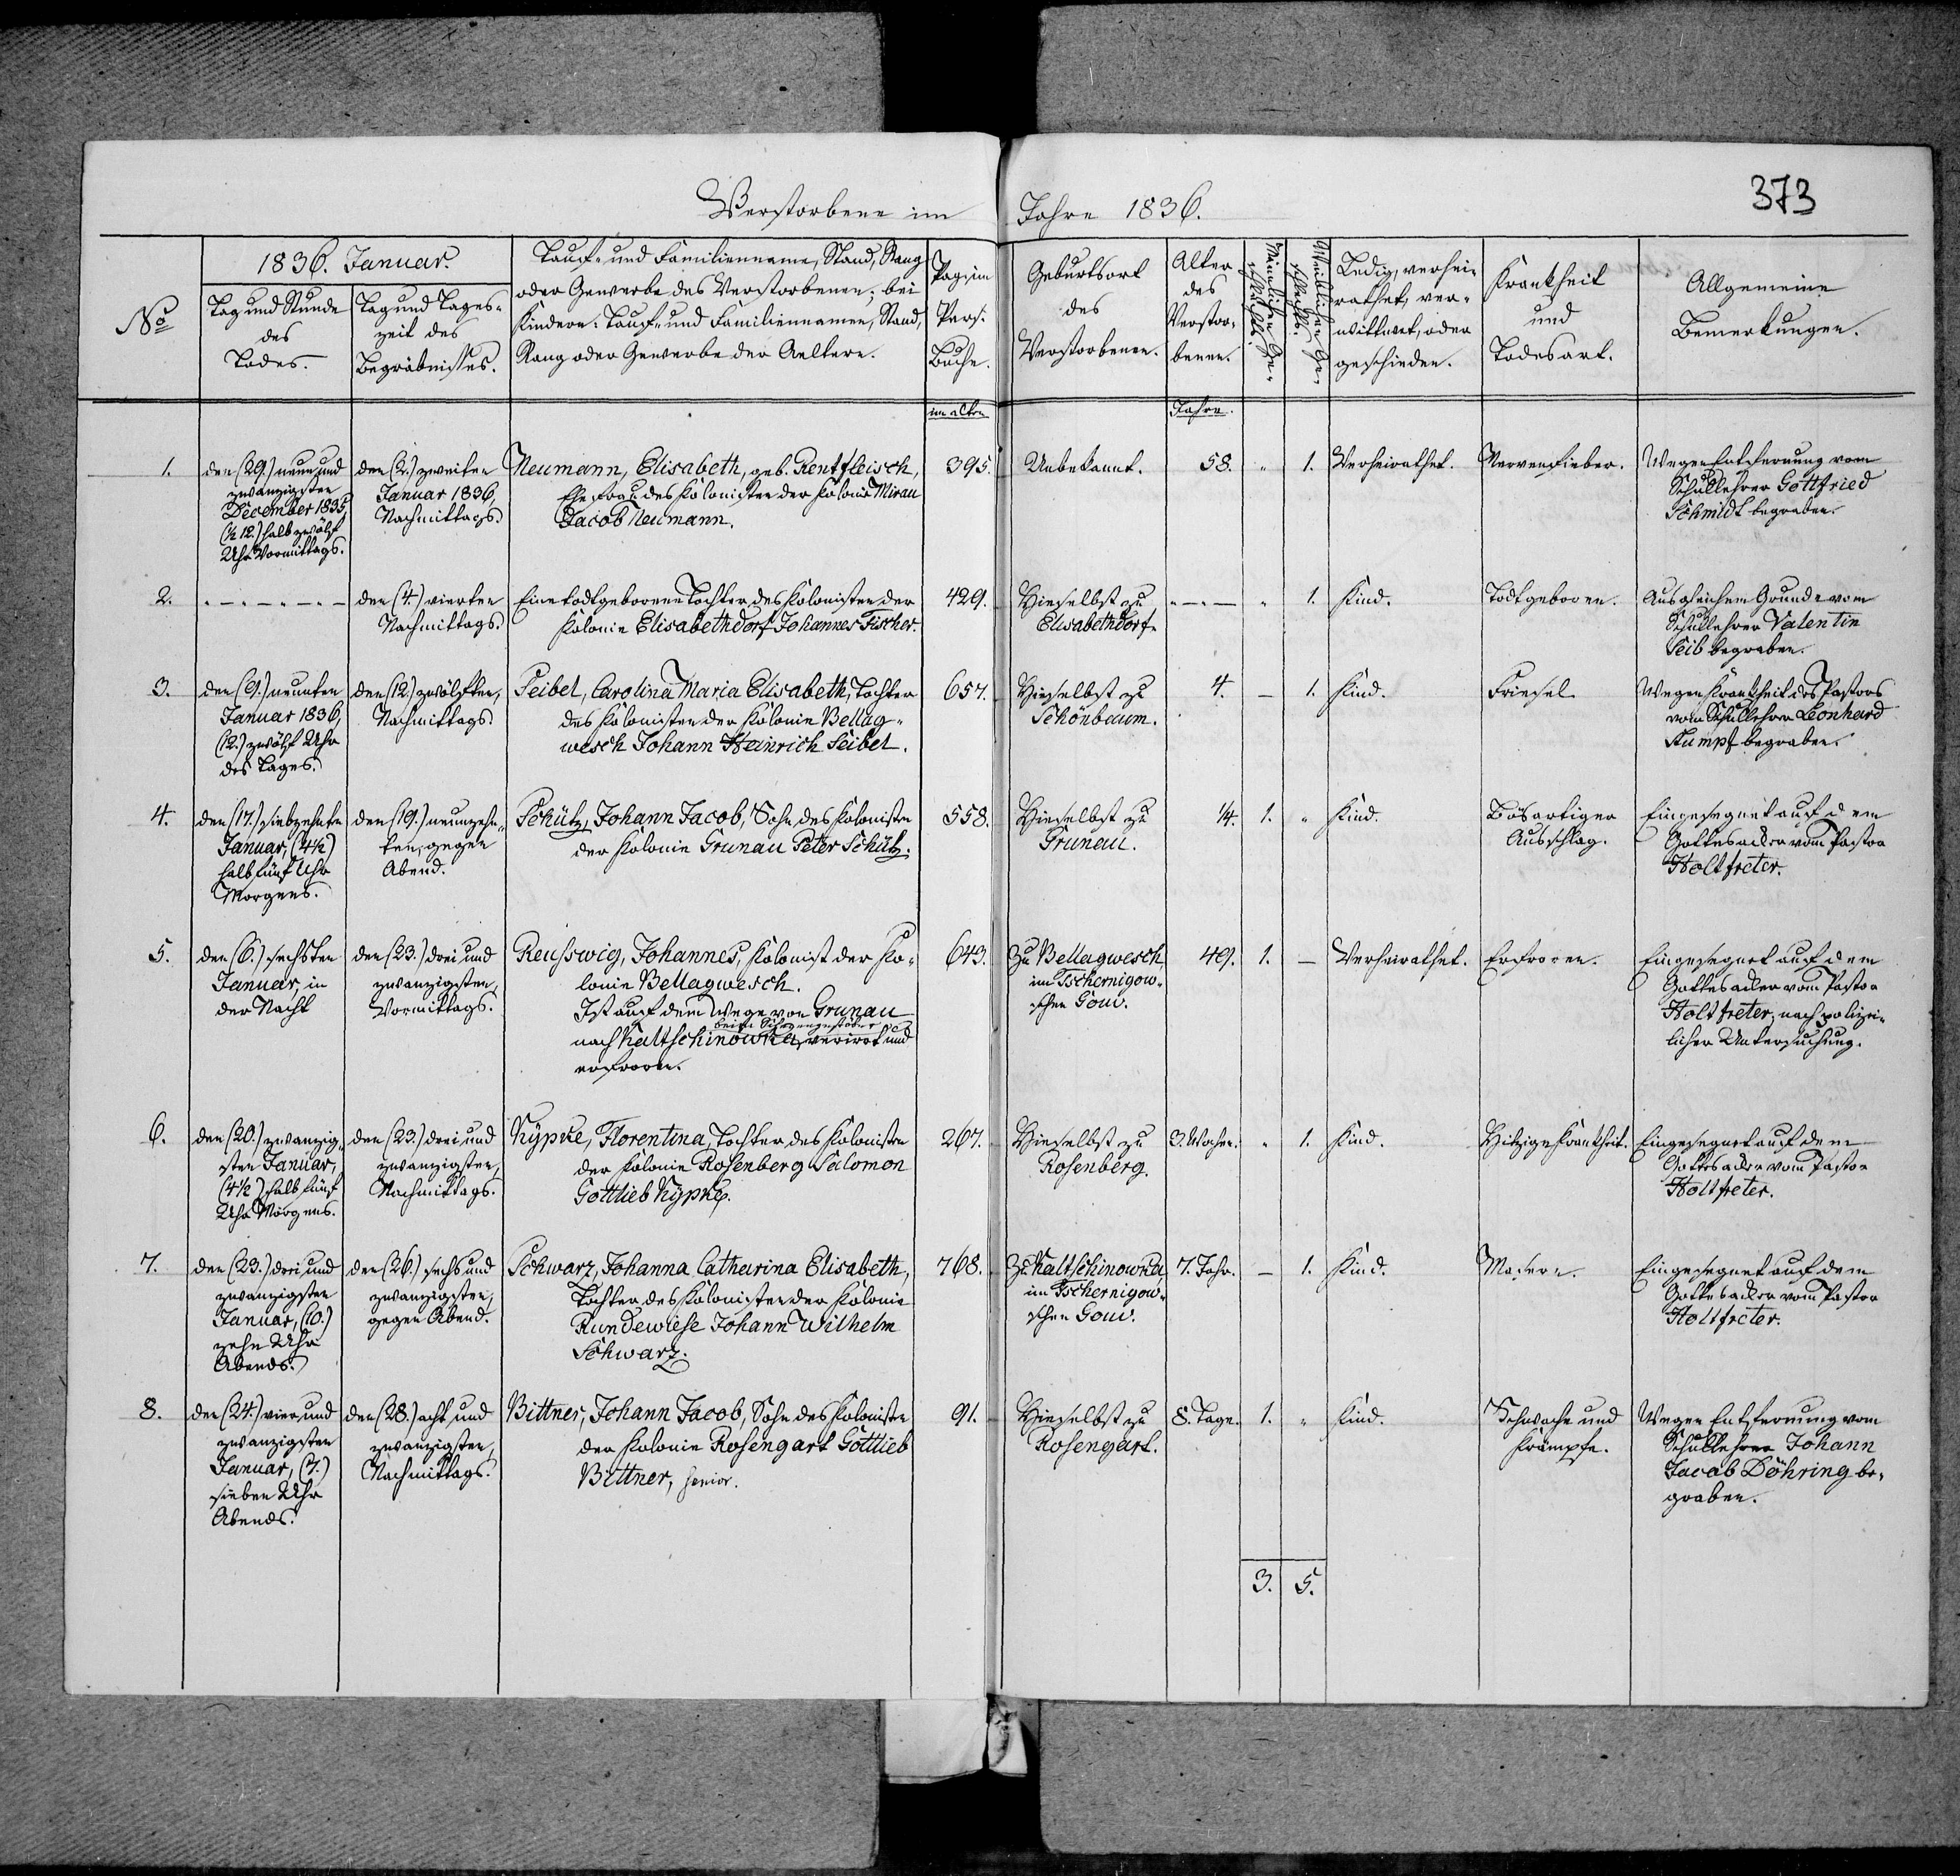 373
Verstorbene im Jahre 1836.
No
1836. Januar.
Tag und Stunde
des
Todes.
Tag und Tages-
zeit des
Begräbnisses.
Tauf- und Familienname, Stand, Rang
oder Gewerbe des Verstorbenen; bei
Kindern: Tauf- und Familiennamen, Stand,
Rang oder Gewerbe der Aeltern.
Pag. im
Pers.
Buche.
Geburtsort
des
Verstorbenen.
Alter
des
Verstor-
benen.
Männlichen Ge-
schlechts.
Weiblichen Ge-
schlechts.
Ledig, verhei-
rathet, ver-
wittwet, oder
geschieden.
Krankheit
und
Todesart.
Allgemeine
Bemerkungen.
im alten
Jahre.
1.
den (29.) neun und
zwanzigsten
December 1835,
(½ 12.) halb zwölf
Uhr Vormittags.
den (2.) zweiten
Januar 1836,
Nachmittags.
Neumann, Elisabeth, geb. Rentfleisch,
Ehefrau des Kolonisten der Kolonie Mirau
Jacob Neumann.
395.
Unbekannt.
58.
"
1.
Verheirathet.
Nervenfieber.
Wegen Entfernung vom
Schullehrer Gottfried
Schmidt begraben.
2.
. – . – . – . –
den (4.) vierten
Nachmittags.
Eine todtgeborene Tochter des Kolonisten der
Kolonie Elisabethdorf Johannes Fischer.
429.
Hieselbst zu
Elisabethdorf.
. – . –
"
1.
Kind.
Todtgeboren.
Aus gleichem Grunde vom
Schullehrer Valentin
Seib begraben.
3.
den (9.) neunten
Januar 1836,
(12.) zwölf Uhr
des Tages.
den (12.) zwölften,
Nachmittags.
Seibel, Carolina Maria Elisabeth, Tochter
des Kolonisten der Kolonie Bellag-
wesch Johann Heinrich Seibel.
657.
Hieselbst zu
Schönbaum.
4.
–
1.
Kind.
Friesel
Wegen Krankheit des Pastors
vom Schullehrer Leonhard
Kumpf begraben.
4.
den (17.) siebzehnten
Januar, (4½)
halb fünf Uhr
Morgens.
den (19.) neunzehn-
ten, gegen
Abend.
Schütz, Johann Jacob, Sohn des Kolonisten
der Kolonie Grunau Peter Schütz.
558.
Hieselbst zu
Grunau.
¼.
1.
"
Kind.
Bösartiger
Ausschlag.
Eingesegnet auf dem
Gottesacker vom Pastor
Holtfreter.
5.
den (6.) sechsten
Januar, in
der Nacht
den (23.) drei und
zwanzigsten,
Vormittags.
Reusswig, Johannes, Kolonist der Ko-
lonie Bellagwesch.
Ist auf dem Wege von Grunau
beim Schneegestöber
nach Kaltschinowka, verirrt und
erfroren.
643.
Zu Bellagwesch
im Tschernigow-
schen Gouv.
49.
1.
–
Verheirathet.
Erfroren.
Eingesegnet auf dem
Gottesacker vom Pastor
Holtfreter, nach polizei-
licher Untersuchung.
6.
den (20.) zwanzig-
sten Januar,
(4½) halb fünf
Uhr Morgens.
den (23.) drei und
zwanzigsten,
Nachmittags.
Kypke, Florentina, Tochter des Kolonisten
der Kolonie Rosenberg Salomon
Gottlieb Kypke.
267.
Hieselbst zu
Rosenberg.
3. Wochen.
"
1.
Kind.
Hitzige Krankheit.
Eingesegnet auf dem
Gottesacker vom Pastor
Holtfreter.
7.
den (23.) drei und
zwanzigsten
Januar, (10.)
zehn Uhr
Abends.
den (26.) sechs und
zwanzigsten,
gegen Abend.
Schwarz, Johanna Catharina Elisabeth,
Tochter des Kolonisten der Kolonie
Rundewiese Johann Wilhelm
Schwarz.
768.
Zu Kaltschinowka
im Tschernigow-
schen Gouv.
7. Jahr.
–
1.
Kind.
Masern.
Eingesegnet auf dem
Gottesacker vom Pastor
Holtfreter.
8.
den (24.) vier und
zwanzigsten
Januar, (7.)
sieben Uhr
Abends.
den (28.) acht und
zwanzigsten,
Nachmittags.
Bittner, Johann Jacob, Sohn des Kolonisten
der Kolonie Rosengart Gottlieb
Bittner, senior.
91.
Hieselbst zu
Rosengart.
8. Tage.
1.
"
Kind.
Schwäche und
Krämpfe.
Wegen Entfernung vom
Schullehrer Johann
Jacob Döhring be-
graben.
3.
5.